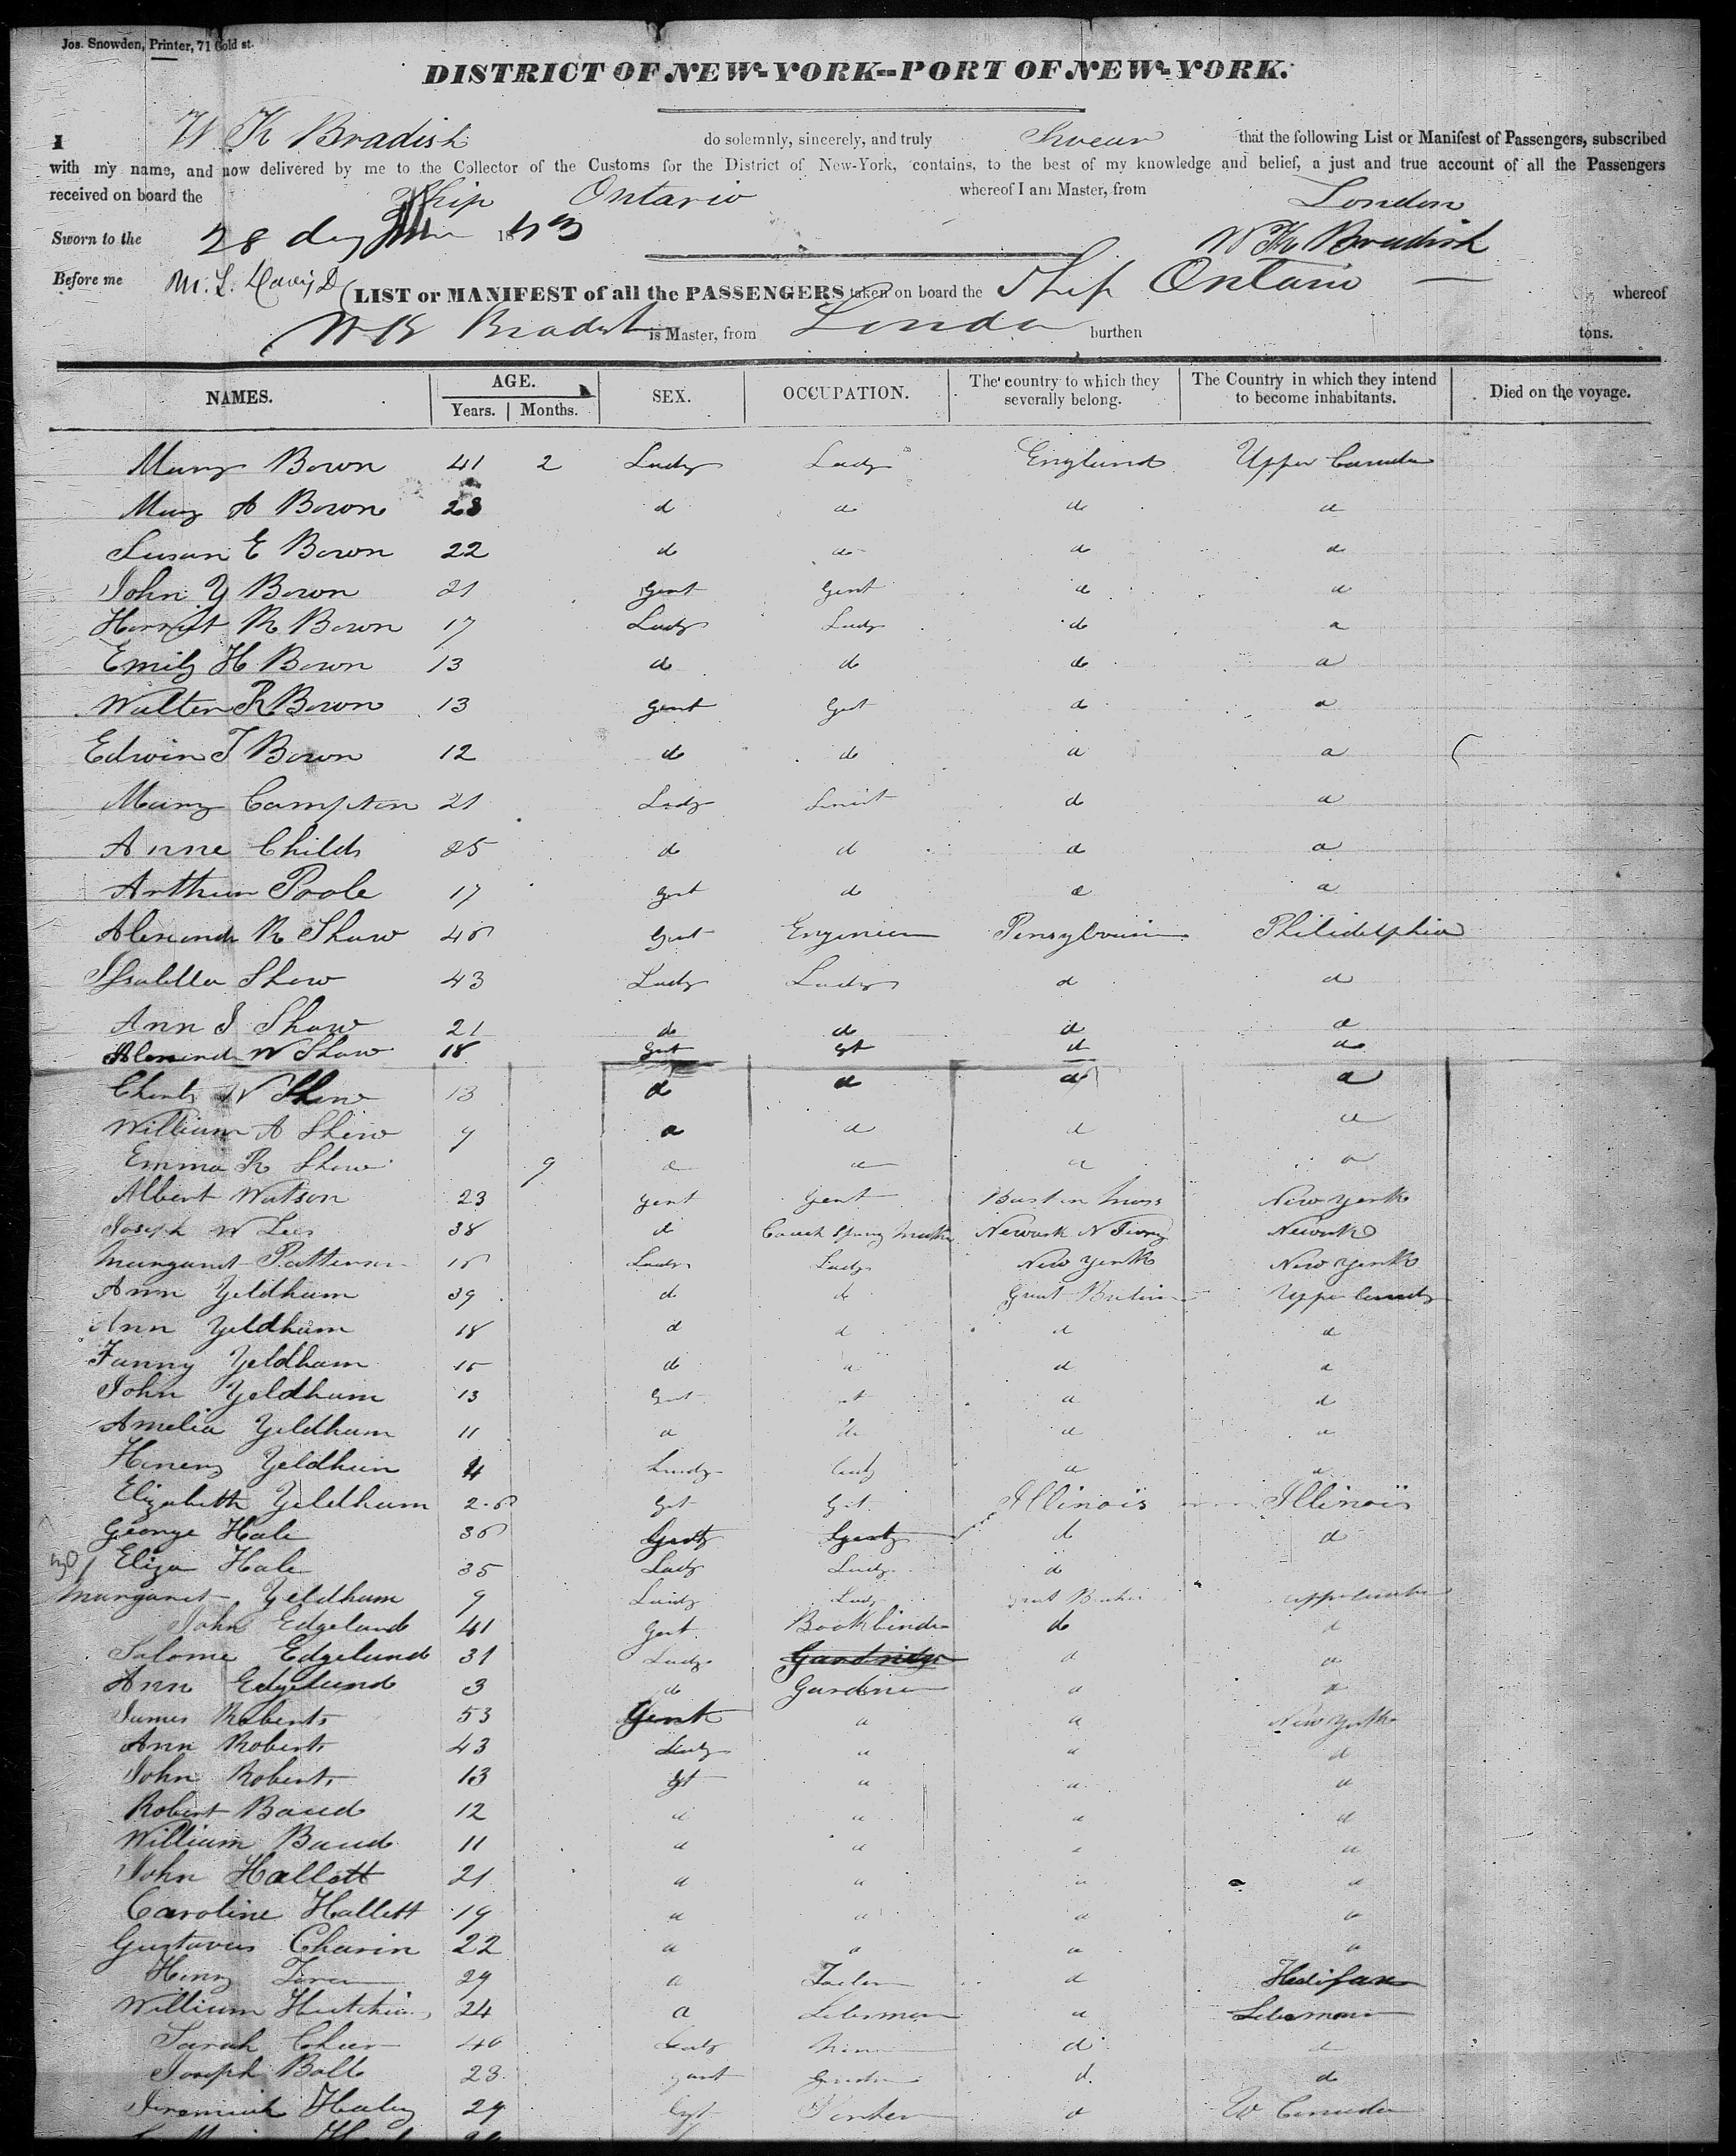 Jos. Snowden, Printer, 71 Gold st.
DISTRICT OF NEW-YORK--PORT OF NEW-YORK.
I W K Bradish do solemnly, sincerely, and truly Swear that the following List or Manifest of Passengers, subscribed
with my name, and now delivered by me to the Collector of the Customs for the District of New-York, contains, to the best of my knowledge and belief, a just and true account of all the Passengers
received on board the Ship Ontario whereof I am Master, from London
Sworn to the 28 day 1843 W K Bradish
Before me M. L. Davis
LIST or MANIFEST of all the PASSENGERS taken on board the Ship Ontario whereof
W K Bradish is Master, from London burthen tons.
NAMES. AGE. SEX. OCCUPATION. The country to which they severally belong. The Country in which they intend to become inhabitants. Died on the voyage.
Years. Months.
Mary Bown 41 2 Lady Lady England Upper Canada
Mary A Bown 23 d d d d
Susan E Bown 22 d do d d
John Y Bown 21 Gent Gent d d
Harriet R Bown 17 Lady Lady d d
Emily H Bown 13 d d d d
Walter R Bown 13 Gent Gent d d
Edwin T Bown 12 d d d d
Mary Campton 21 Lady d d
Anne Childs 25 d d d d
Arthur Poole 17 Gent d d d
Alexander R Shaw 45 Gent Engineer Pensylvania Philidelphia
Isabella Shaw 43 Lady Lady d d
Ann I Shaw 21 d d d d
Alexander W Shaw 18 Gent Gt d d
Charls W Shaw 13 d d d d
William A Shaw 9 d d d d
Emma R Shaw 9 d d d d
Albert Watson 23 Gent Gent Boston Mass New York
Joseph W Lees 38 d Coach Spring Maker Newark N Jersey Newark
Margaret Patterson 15 Lady Lady New York New York
Ann Yeldham 39 d d Great Britain Upper Canada
Ann Yeldham 18 d d d d
Fanny Yeldham 15 d d d d
John Yeldham 13 Gent d d d
Amelia Yeldham 11 d d d d
Yeldham 4 Lady Lady d d
Elizabeth Yeldham Gt Gt Illinois Illinois
George Hale 36 Gent Gent d d
Eliza Hale 35 Lady Lady d
Margaret Yeldham 9 Lady Lady Great Britain Upper Canada
John Edgelund 41 Gent Bookbinder do d
Salome Edgelund 31 Lady d d
Ann Edgelund 3 do Gardiner d d
James Roberts 53 Gent d d New York
Ann Roberts 43 Lady d d d
John Roberts 13 Gt d d d
Robert Baud 12 d d d d
William Baud 11 d d d d
John Hallett 21 d d d d
Caroline Hallett 19 d d d d
Gustavus Charin 22 d d d d
Henry 29 d d Halifax
William Hutchins 24 d d
Sarah 40 Lady d d
Joseph Ball 23 Gent d d
Jeremiah Healey 29 Porter d W Canada